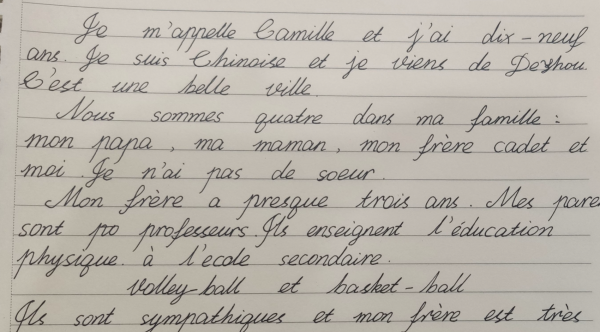 Je m'appelle Camille et j'ai dix-neuf
ans. Je suis Chinoise et je viens de Dezhou.
C'est une belle ville.
Nous sommes quatre dans ma famille :
mon papa, ma maman, mon frère cadet et
moi. Je n'ai pas de soeur.
Mon frère a presque trois ans. Mes pare
sont po professeurs. Ils enseignent l'éducation
physique. à l'école secondaire.
volley-ball et basket-ball
Ils sont sympathiques et mon frère est très